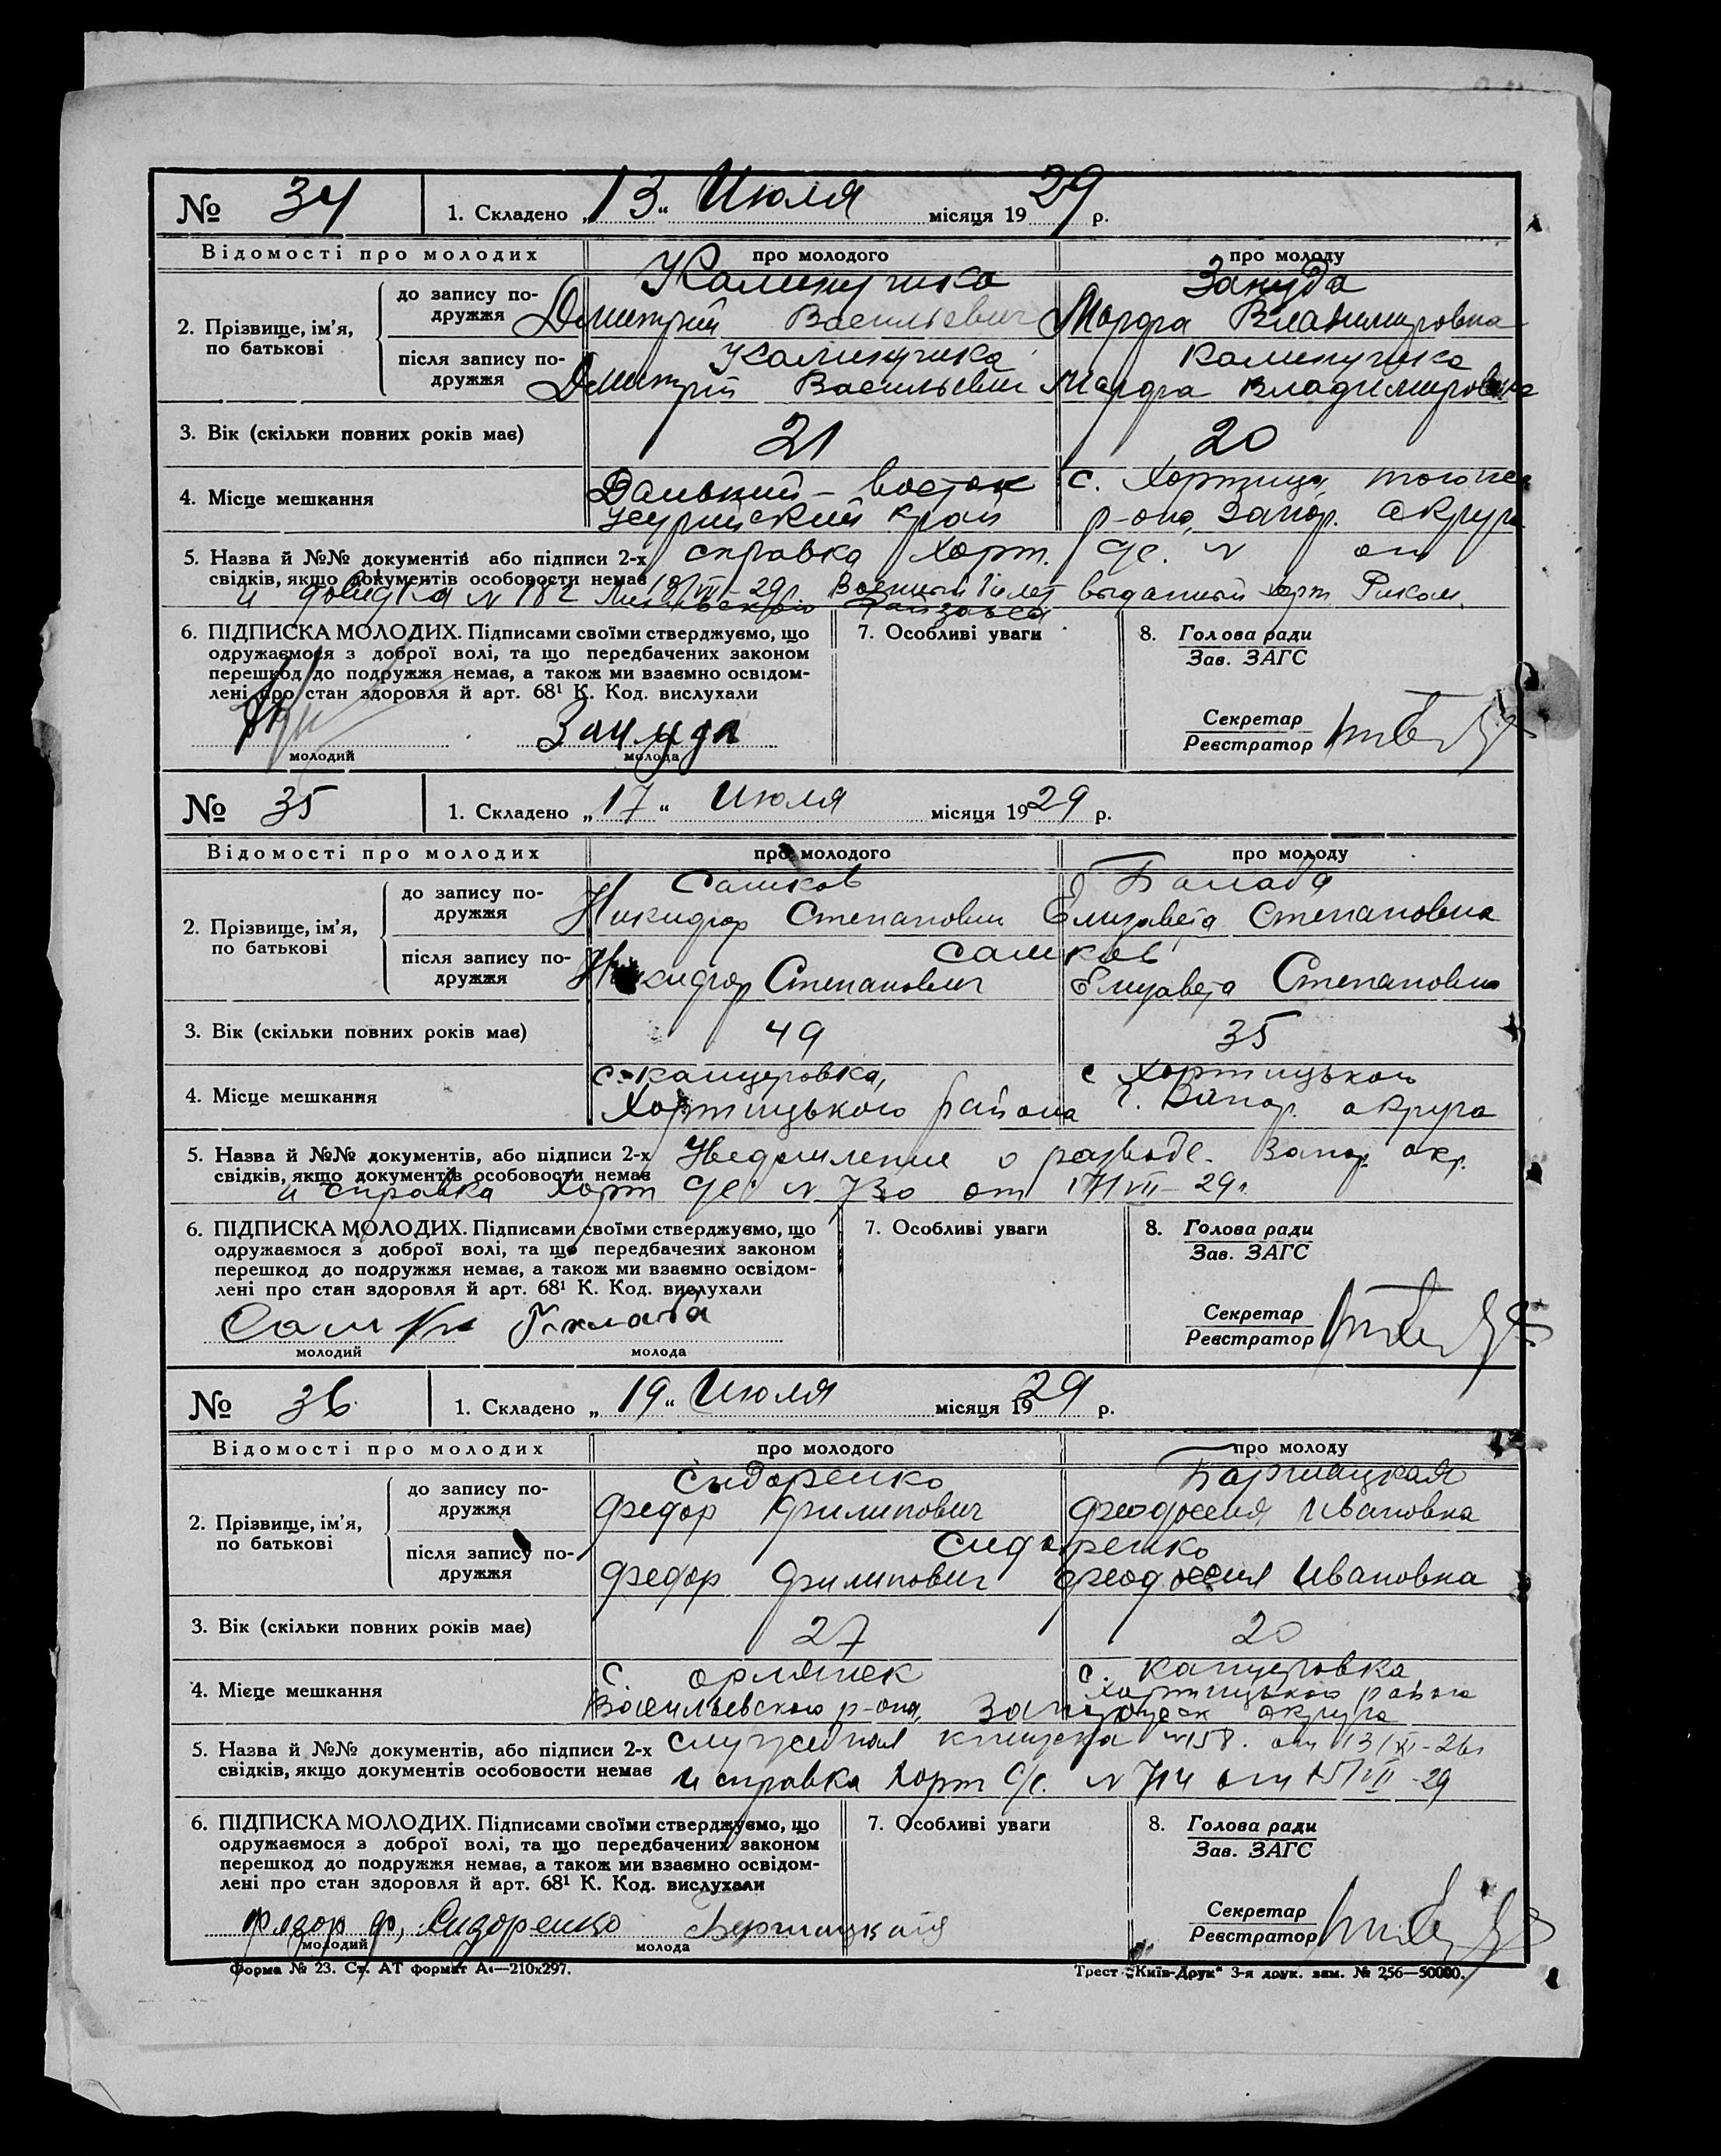 № 34 1. Складено „13“ Июля місяця 1929 р.
Відомості про молодих про молодого про молоду
2. Прізвище, ім’я, по батькові
до запису подружжя
Зануда
Дмитрий Васильевич Марфа Владимировна
після запису подружжя
Дмитрий Васильевич Марфа Владимировна
3. Вік (скільки повних років має) 21 20
4. Місце мешкання
Дальний-восток с. Хортица того же
Усурийский край р-она, Запор. Округа
5. Назва й №№ документів або підписи 2-х справка Хорт. с/с. № от
свідків, якщо документів особовости немає 12/VII-29г. Военный билет выданный Хорт. Риком.
и довідка № 182
6. ПІДПИСКА МОЛОДИХ. Підписами своїми стверджуємо, що
одружаємося з доброї волі, та що передбачених законом
перешкод до подружжя немає, а також ми взаємно освідом-
лені про стан здоровля й арт. 68¹ К. Код. вислухали
Зануда
молодий молода
7. Особливі уваги
8. Голова ради
Зав. ЗАГС
Секретар
Реєстратор
№ 35 1. Складено „17“ Июля місяця 1929 р.
Відомості про молодих про молодого про молоду
2. Прізвище, ім’я, по батькові
до запису подружжя
Сашков
Никифор Степанович Елизавета Степановна
після запису подружжя
Сашков
Никифор Степанович Елизавета Степановна
3. Вік (скільки повних років має) 49 35
4. Місце мешкання
с-Канцеровка, с Хортицького
Хортицького района Запор. округа
5. Назва й №№ документів, або підписи 2-х Уведомление о разводе. Запор. окр.
свідків, якщо документів особовости немає
и справка Хорт с/с. № 730 от 17/VII-29г.
6. ПІДПИСКА МОЛОДИХ. Підписами своїми стверджуємо, що
одружаємося з доброї волі, та що передбачених законом
перешкод до подружжя немає, а також ми взаємно освідом-
лені про стан здоровля й арт. 68¹ К. Код. вислухали
молодий молода
7. Особливі уваги
8. Голова ради
Зав. ЗАГС
Секретар
Реєстратор
№ 36 1. Складено „19“ Июля місяця 1929 р.
Відомості про молодих про молодого про молоду
2. Прізвище, ім’я, по батькові
до запису подружжя
Сидоренко
Федор Филипович Феодосия Ивановна
після запису подружжя
Сидоренко
Федор Филипович Феодосия Ивановна
3. Вік (скільки повних років має) 27 20
4. Місце мешкання
с. орлянск с. Канцеровка
Хортицького района
Васильевского р-она, Запорожск округа
5. Назва й №№ документів, або підписи 2-х служебная книжка №158. от 13/XI-26г
свідків, якщо документів особовости немає и справка Хорт с/с. № 714 от 15/VII-29
6. ПІДПИСКА МОЛОДИХ. Підписами своїми стверджуємо, що
одружаємося з доброї волі, та що передбачених законом
перешкод до подружжя немає, а також ми взаємно освідом-
лені про стан здоровля й арт. 68¹ К. Код. вислухали
Фядор Ф, Сидоренко
молодий молода
7. Особливі уваги
8. Голова ради
Зав. ЗАГС
Секретар
Реєстратор
Форма № 23. Ст. АТ формат А₄—210х297. Трест „Київ-Друк“ 3-я друк. зам. № 256—50000.